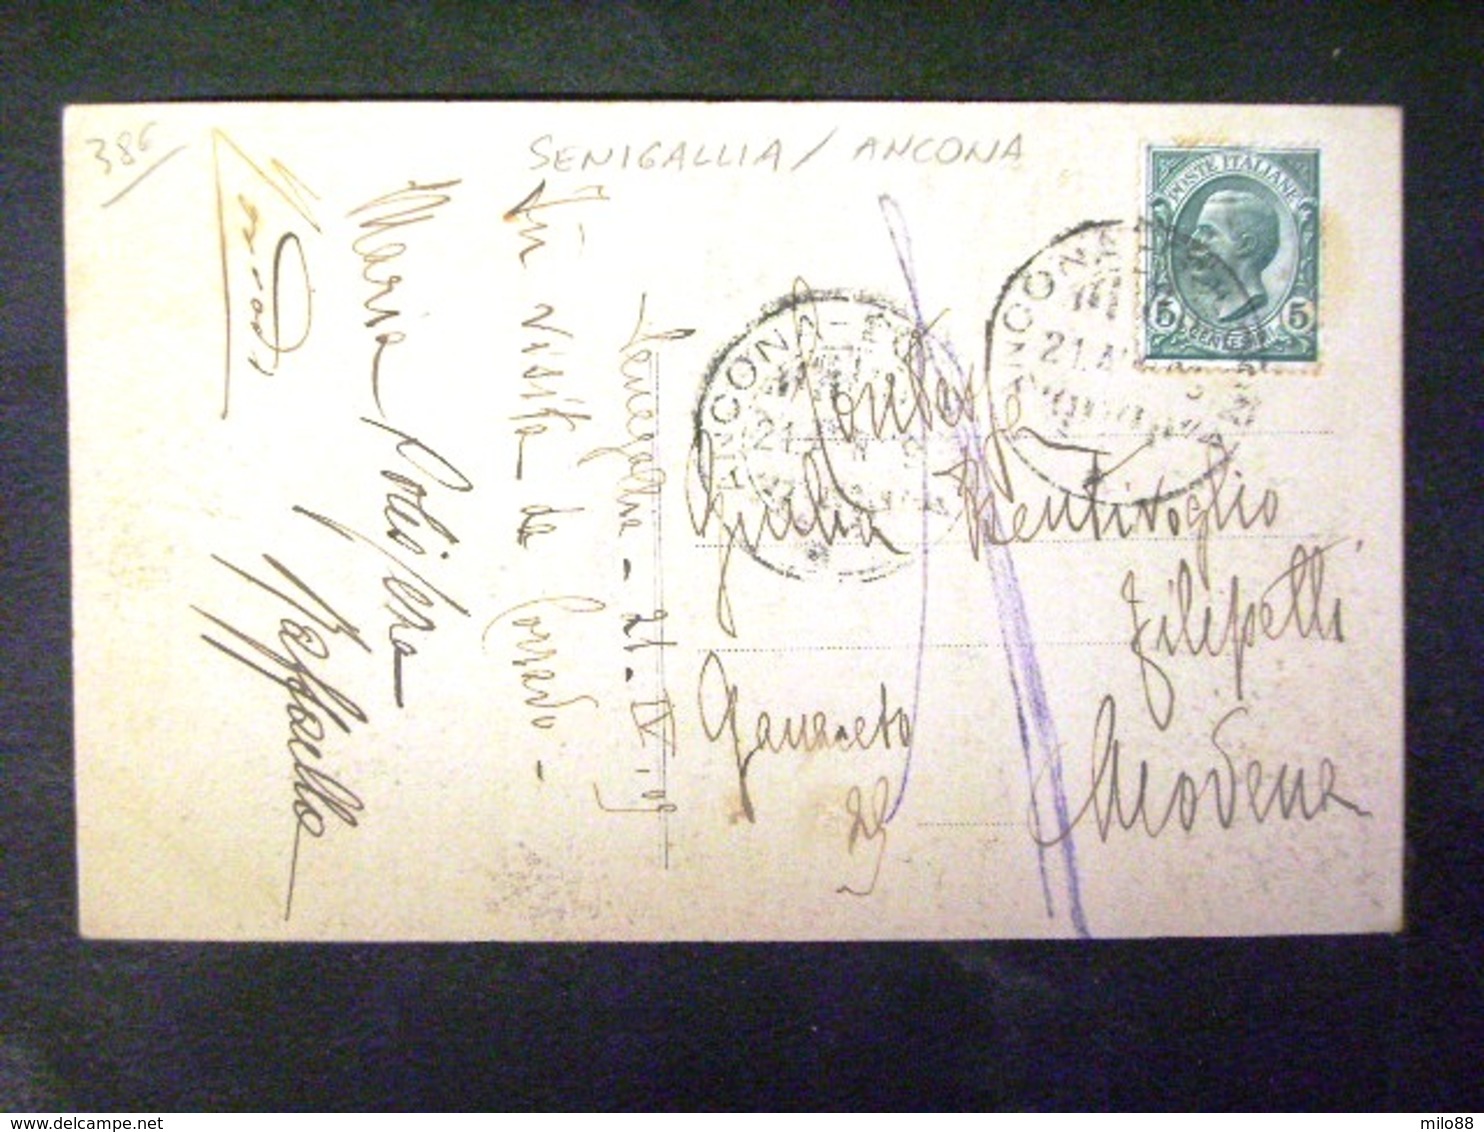 386
SENIGALLIA / ANCONA
POSTE ITALIANE
5 5
ANCONA
21
ANCONA
21. A
Senigallia - 21. IV. 09
In visita da
Corrado -
Maria
Raffaello
Contessa
Giulia Bentivoglio
Filipetti
Ganaceto
29
Modena
milo88